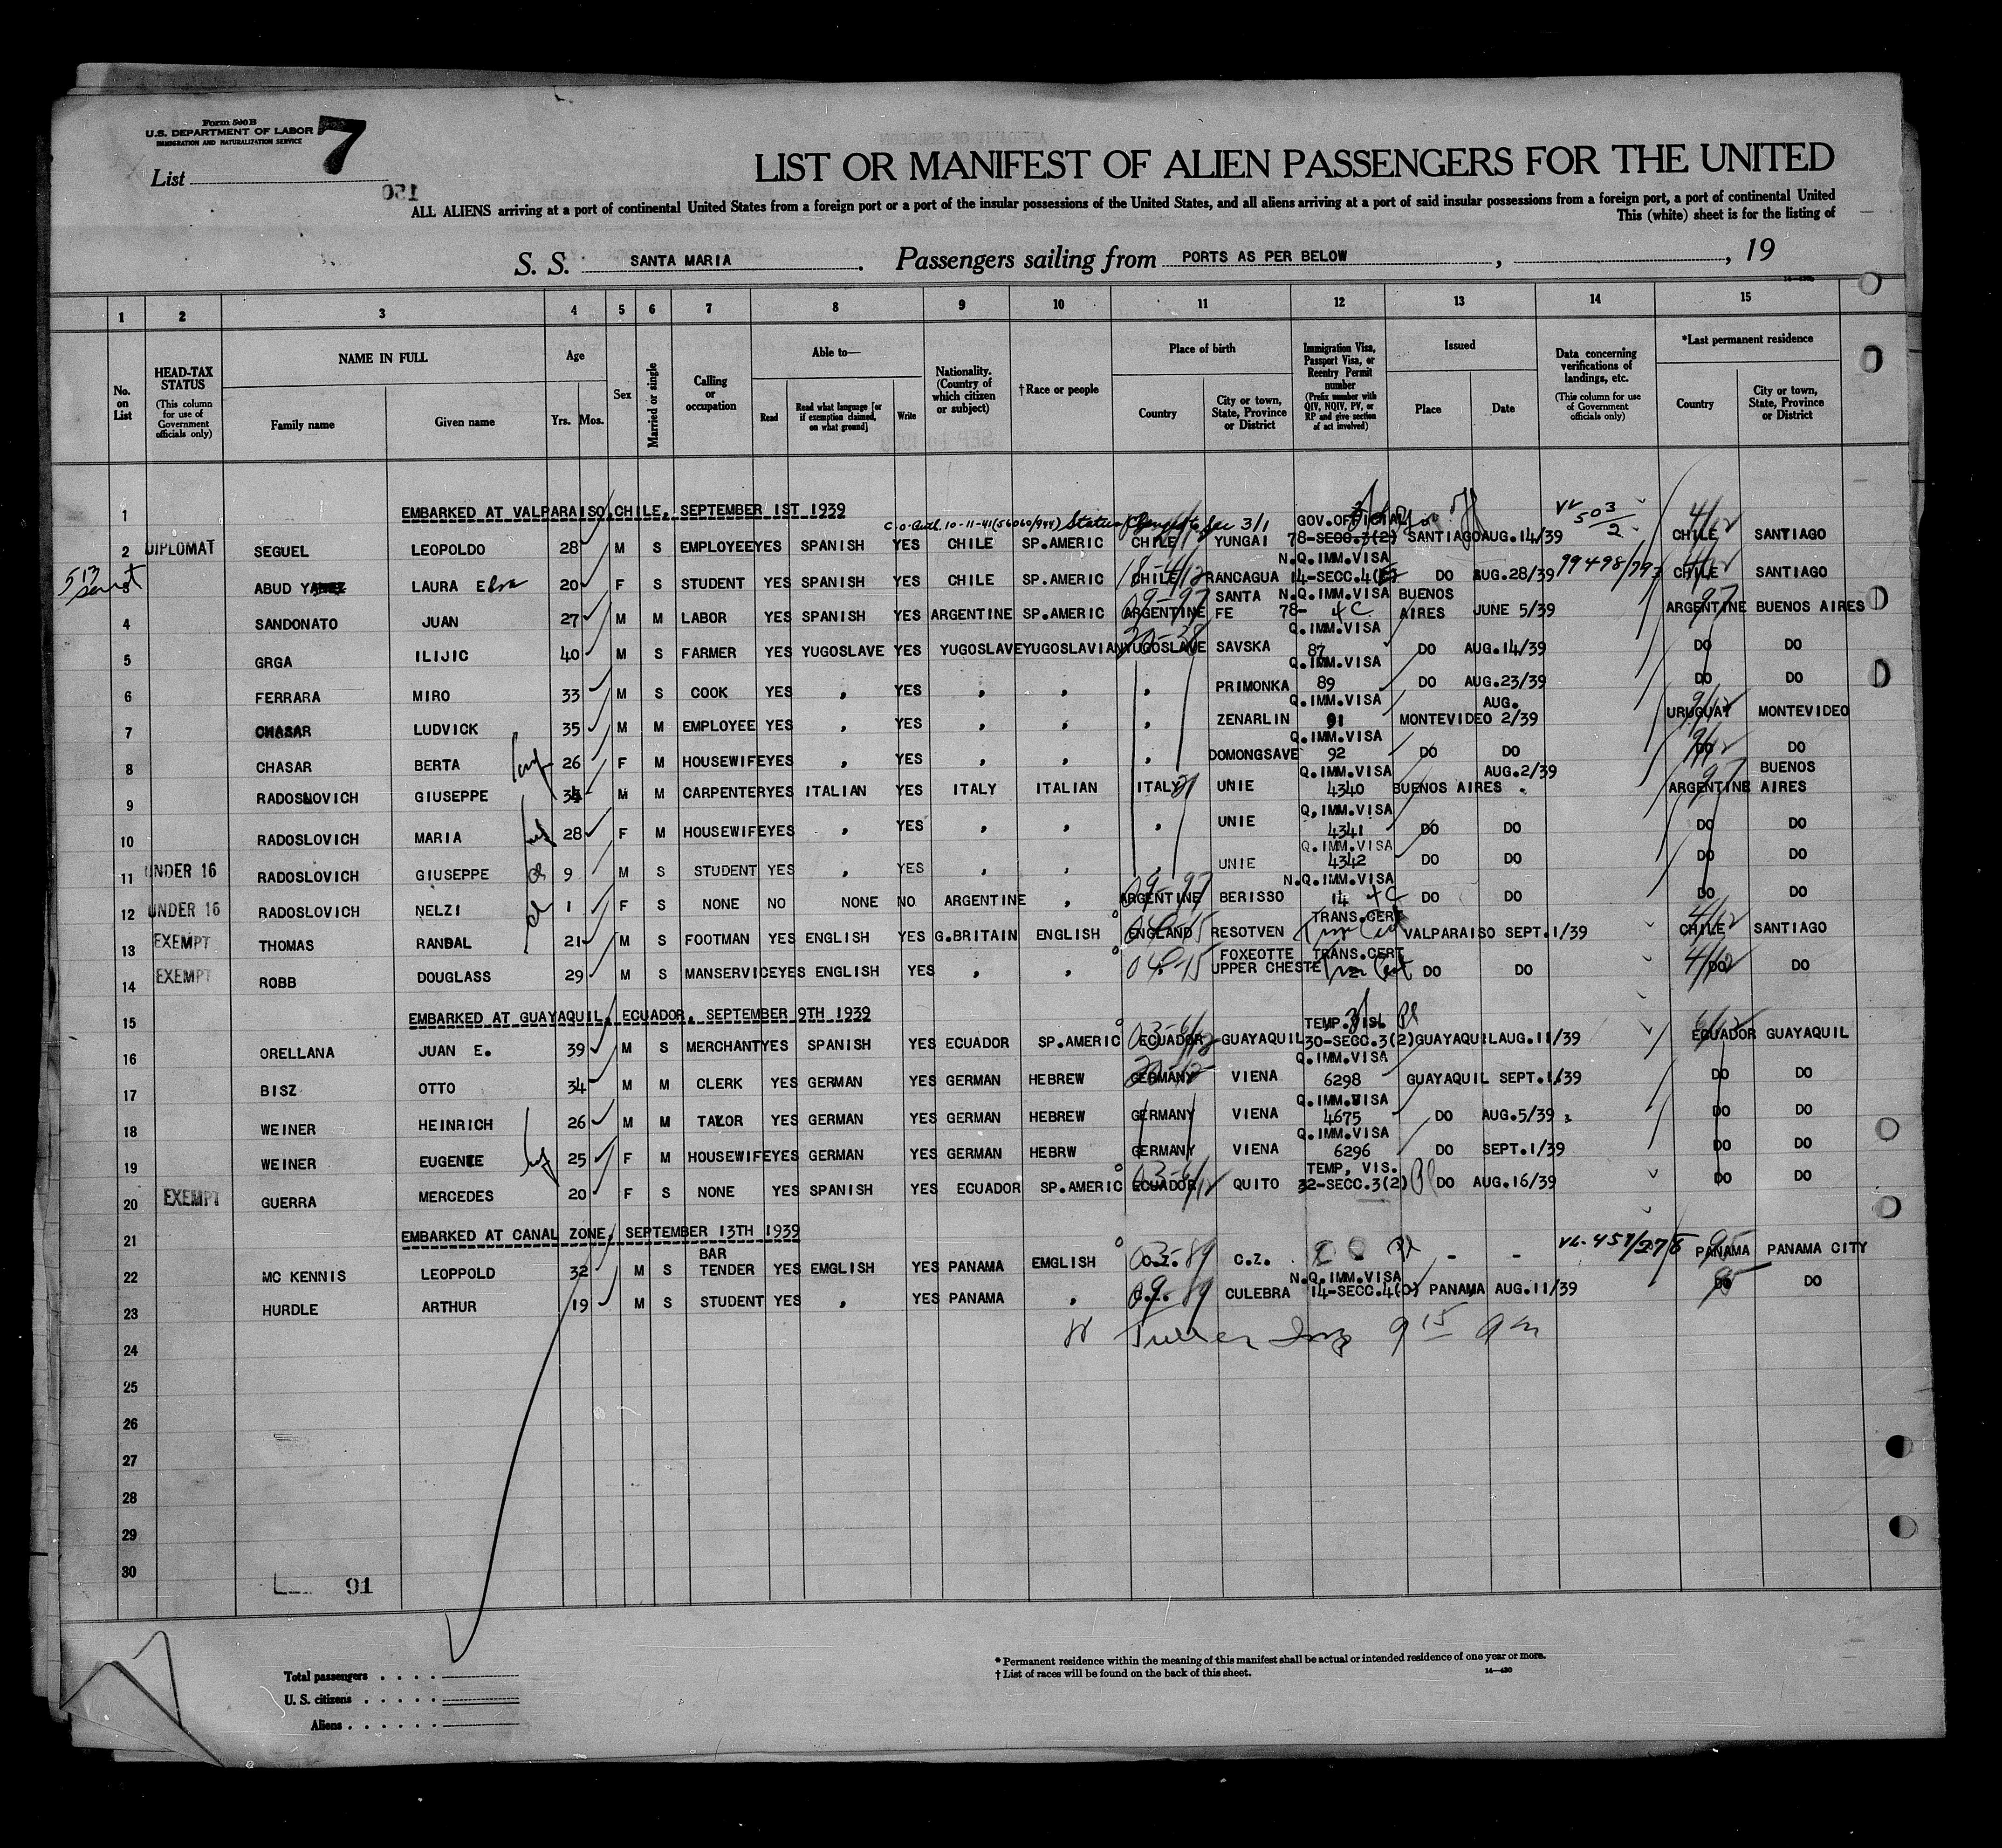 Form 500 B
U.S. DEPARTMENT OF LABOR
IMMIGRATION AND NATURALIZATION SERVICE
List 7
150
LIST OR MANIFEST OF ALIEN PASSENGERS FOR THE UNITED
ALL ALIENS arriving at a port of continental United States from a foreign port or a port of the insular possessions of the United States, and all aliens arriving at a port of said insular possessions from a foreign port, a port of continental United
This (white) sheet is for the listing of
S. S. SANTA MARIA. Passengers sailing from PORTS AS PER BELOW, , 19
1 2 3 4 5 6 7 8 9 10 11 12 13 14 15
No. on List
HEAD-TAX STATUS (This column for use of Government officials only)
NAME IN FULL
Family name Given name
Age Yrs. Mos.
Sex
Married or single
Calling or occupation
Able to— Read Read what language [or if exemption claimed, on what ground] Write
Nationality. (Country of which citizen or subject)
†Race or people
Place of birth Country City or town, State, Province or District
Immigration Visa, Passport Visa, or Reentry Permit number (Prefix number with QIV, NQIV, PV, or RP and give section of act involved)
Issued Place Date
Data concerning verifications of landings, etc. (This column for use of Government officials only)
*Last permanent residence Country City or town, State, Province or District
1 EMBARKED AT VALPARAISO, CHILE, SEPTEMBER 1ST 1939
C.O. Auth. 10-11-41 (56060/944) Status changed to Sec 3/1
2 DIPLOMAT SEGUEL LEOPOLDO 28 M S EMPLOYEE YES SPANISH YES CHILE SP.AMERIC CHILE YUNGAI GOV.OFFICIAL 78-SECC.3(2) SANTIAGO AUG.14/39 503/2 CHILE SANTIAGO
3 ABUD LAURA Elsa 20 F S STUDENT YES SPANISH YES CHILE SP.AMERIC CHILE RANCAGUA N.Q.IMM.VISA 14-SECC.4( DO AUG.28/39 99498/793 CHILE SANTIAGO
4 SANDONATO JUAN 27 M M LABOR YES SPANISH YES ARGENTINE SP.AMERIC ARGENTINE SANTA FE N.Q.IMM.VISA 78- 4C BUENOS AIRES JUNE 5/39 ARGENTINE BUENOS AIRES
5 GRGA ILIJIC 40 M S FARMER YES YUGOSLAVE YES YUGOSLAVE YUGOSLAVIAN YUGOSLAVE SAVSKA Q.IMM.VISA 87 DO AUG.14/39 DO DO
6 FERRARA MIRO 33 M S COOK YES , YES , , , PRIMONKA Q.IMM.VISA 89 DO AUG.23/39 DO DO
7 CHASAR LUDVICK 35 M M EMPLOYEE YES , YES , , , ZENARLIN Q.IMM.VISA 91 MONTEVIDEO AUG. 2/39 URUGUAY MONTEVIDEO
8 CHASAR BERTA 26 F M HOUSEWIFE YES , YES , , , DOMONGSAVE Q.IMM.VISA 92 DO DO DO DO
9 RADOSLOVICH GIUSEPPE 34 M M CARPENTER YES ITALIAN YES ITALY ITALIAN ITALY UNIE Q.IMM.VISA 4340 BUENOS AIRES AUG.2/39 ARGENTINE BUENOS AIRES
10 RADOSLOVICH MARIA 28 F M HOUSEWIFE YES , YES , , , UNIE Q.IMM.VISA 4341 DO DO DO DO
11 UNDER 16 RADOSLOVICH GIUSEPPE 9 M S STUDENT YES , YES , , , UNIE Q.IMM.VISA 4342 DO DO DO DO
12 UNDER 16 RADOSLOVICH NELZI 1 F S NONE NO NONE NO ARGENTINE , ARGENTINE BERISSO N.Q.IMM.VISA 14 4C DO DO DO DO
13 EXEMPT THOMAS RANDAL 21 M S FOOTMAN YES ENGLISH YES G.BRITAIN ENGLISH ENGLAND RESOTVEN TRANS.CERT VALPARAISO SEPT.1/39 CHILE SANTIAGO
14 EXEMPT ROBB DOUGLASS 29 M S MANSERVICE YES ENGLISH YES , , FOXEOTTE UPPER CHESTE TRANS.CERT DO DO DO DO
15 EMBARKED AT GUAYAQUIL, ECUADOR, SEPTEMBER 9TH 1939
16 ORELLANA JUAN E. 39 M S MERCHANT YES SPANISH YES ECUADOR SP.AMERIC ECUADOR GUAYAQUIL TEMP.VIS. 30-SECC.3(2) GUAYAQUIL AUG.11/39 ECUADOR GUAYAQUIL
17 BISZ OTTO 34 M M CLERK YES GERMAN YES GERMAN HEBREW GERMANY VIENA Q.IMM.VISA 6298 GUAYAQUIL SEPT.1/39 DO DO
18 WEINER HEINRICH 26 M M TAYLOR YES GERMAN YES GERMAN HEBREW GERMANY VIENA Q.IMM.VISA 4675 DO AUG.5/39 DO DO
19 WEINER EUGENIE 25 F M HOUSEWIFE YES GERMAN YES GERMAN HEBRW GERMANY VIENA Q.IMM.VISA 6296 DO SEPT.1/39 DO DO
20 EXEMPT GUERRA MERCEDES 20 F S NONE YES SPANISH YES ECUADOR SP.AMERIC ECUADOR QUITO TEMP, VIS. 32-SECC.3(2) DO AUG.16/39 DO DO
21 EMBARKED AT CANAL ZONE, SEPTEMBER 13TH 1939
22 MC KENNIS LEOPPOLD 32 M S BAR TENDER YES EMGLISH YES PANAMA EMGLISH C.Z. C.Z. - - - PANAMA PANAMA CITY
23 HURDLE ARTHUR 19 M S STUDENT YES , YES PANAMA , C.Z. CULEBRA N.Q.IMM.VISA 14-SECC.4(C) PANAMA AUG.11/39 DO DO
24
25
26
27
28
29
30
91
Total passengers . . . .
U. S. citizens . . . . .
Aliens . . . . . .
* Permanent residence within the meaning of this manifest shall be actual or intended residence of one year or more.
† List of races will be found on the back of this sheet. 14—420